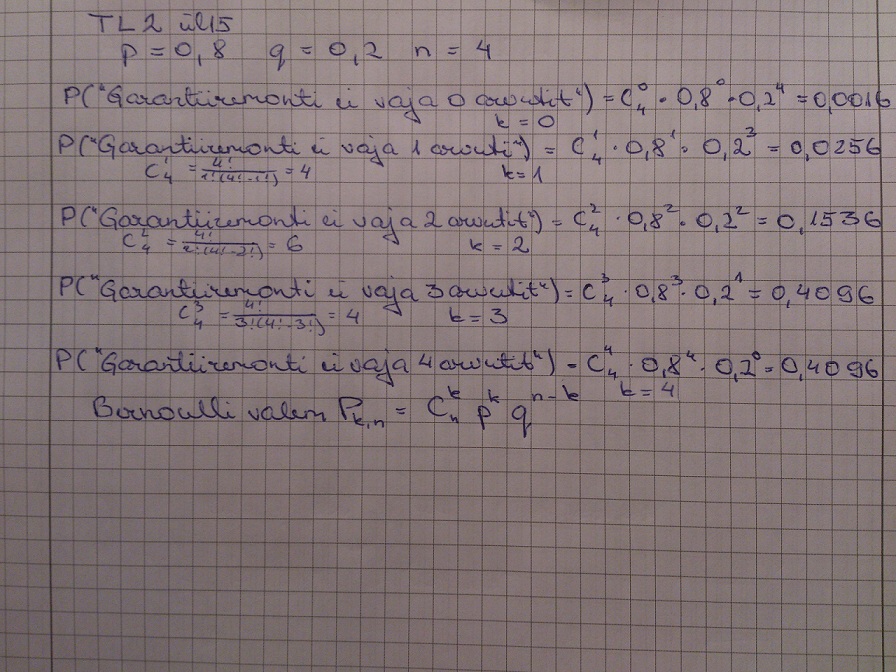 TL2 ül15
p = 0,8 q = 0,2 n = 4
P("Garantiiremonti ei vaja 0 arvutit") = C₄⁰ · 0,8⁰ · 0,2⁴ = 0,0016
k = 0
P("Garantiiremonti ei vaja 1 arvuti") = C₄¹ · 0,8¹ · 0,2³ = 0,0256
C₄¹ = 4!/1!(4!-1!) = 4 k = 1
P("Garantiiremonti ei vaja 2 arvutit") = C₄² · 0,8² · 0,2² = 0,1536
C₄² = 4!/2!(4!-2!) = 6 k = 2
P("Garantiiremonti ei vaja 3 arvutit") = C₄³ · 0,8³ · 0,2¹ = 0,4096
C₄³ = 4!/3!(4!-3!) = 4 k = 3
P("Garantiiremonti ei vaja 4 arvutit") = C₄⁴ · 0,8⁴ · 0,2⁰ = 0,4096
k = 4
Bernoulli valem Pₖ,ₙ = Cₙᵏ pᵏ qⁿ⁻ᵏ